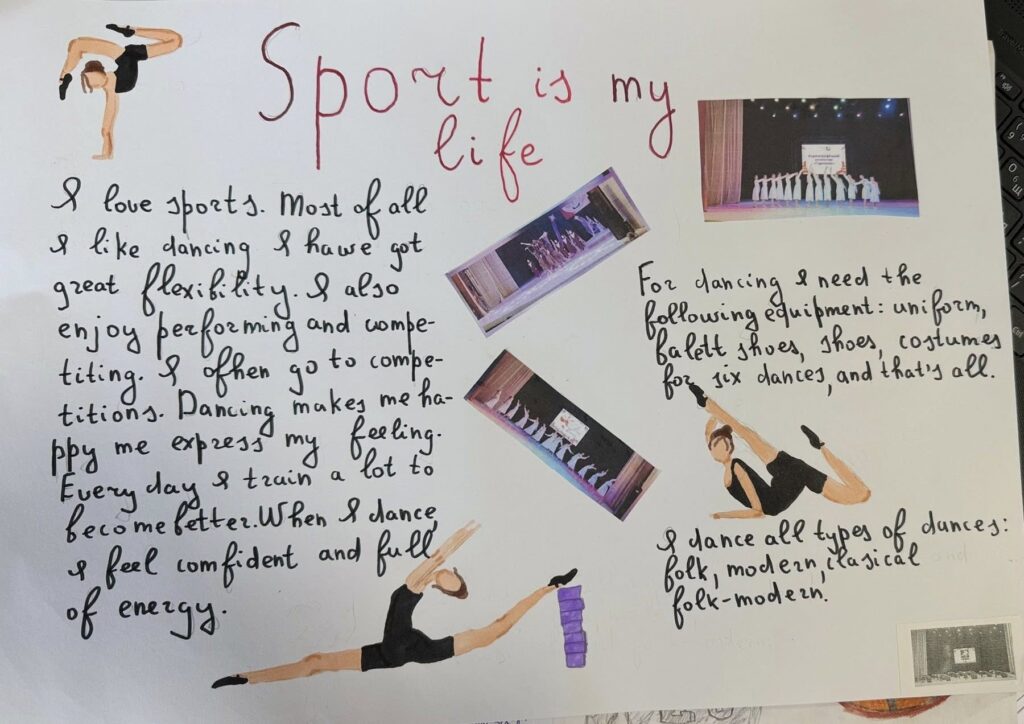 Sport is my
life
I love sports. Most of all
I like dancing I hawe got
great flexibility. I also
enjoy performing and compe-
titing. I ofhen go to compe-
titions. Dancing makes me ha-
ppy me express my feeling.
Every day I train a lot to
become better. When I dance,
I feel comfident and full
of energy.
For dancing I need the
following equipment: uniform,
balett shoes, shoes, costumes
for six dances, and that's all.
I dance all types of dances:
folk, modern, clasical
folk-modern.